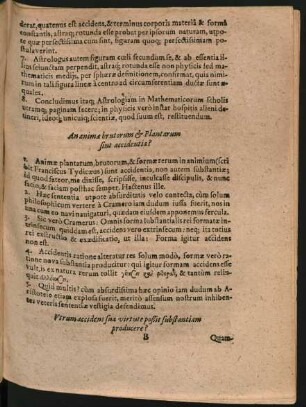 derat, quatenus est accidens, & terminus corporis materiâ & formâ
constantis, astraq; rotunda esse probat per ipsorum naturam, utpo-
te quæ perfectissima cum sint, figuram quoq; perfectissimam po-
stulaverint.
7. Astrologus autem figuram cœli secundum se, & ab essentia il-
lius sejunctam perpendit, astraq; rotunda esse non physicis sed ma-
thematicis mediis, per sphæræ definitionem, confirmat, quis nimi-
rum in tali figura lineæ à centro ad circumferentiam ductæ sint æ-
quales.
8. Concludimus itaq; Astrologiam in Mathematicorum scholis
utramq; paginam facere; in physicis verò instar hospitis alieni deti-
neri, ideoq; unicuiq; scientiæ, quod suum est, restituendum.
An animæ brutorum & Plantarum
sint accidentia?
1. Animæ plantarum, brutorum, & formæ rerum inanimium (scri-
bit Franciscus Tydicæus) sunt accidentia, non autem substantiæ;
id quod sateor, me dixisse, scripsisse, inculcasse discipulis, & nunc
facio, & faciam posthac semper. Hactenus ille.
2. Hæc sententia utpote absurditatis velo contecta, cum solum
philosophicum veriens à Cramero jam dudum jussa fuerit, nos in
una cum eo navi navigaturi, quædam ejusdem apponemus fercula.
3. Sic verò Cramerus: Omnis forma substantialis est rerum in-
trinsecum quiddam est, accidens vero extrinsecum; neq; ita totius
rei extinctio & exædinatio, ut illa: Forma igitur accidens
non est.
4. Accidentis ratione alteratur res solum modò, formæ verò ra-
tione nova substantia producitur: qui igitur formam accidens esse
vult, is ex natura rerum tollit γένεσιν καὶ φθορὰν, & tantum relin-
quit ἀλλοίωσιν.
5. Quid multis? cum absurdissima hæc opinio jam dudum ab A-
ristotele etiam explosa fuerit, meritò assensum nostrum inhiben-
tes veteris sententiæ vestigia defendimus.
Utrum accidens sua virtute possit substantiam
producere?
B Quam-